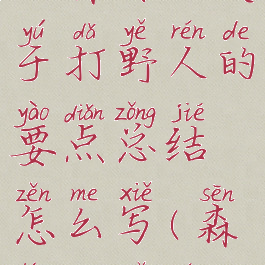 yú dǎ yě rén de
于打野人的
yào diǎn zǒng jié
要点总结
zěn me xiě sēn
怎么写(森